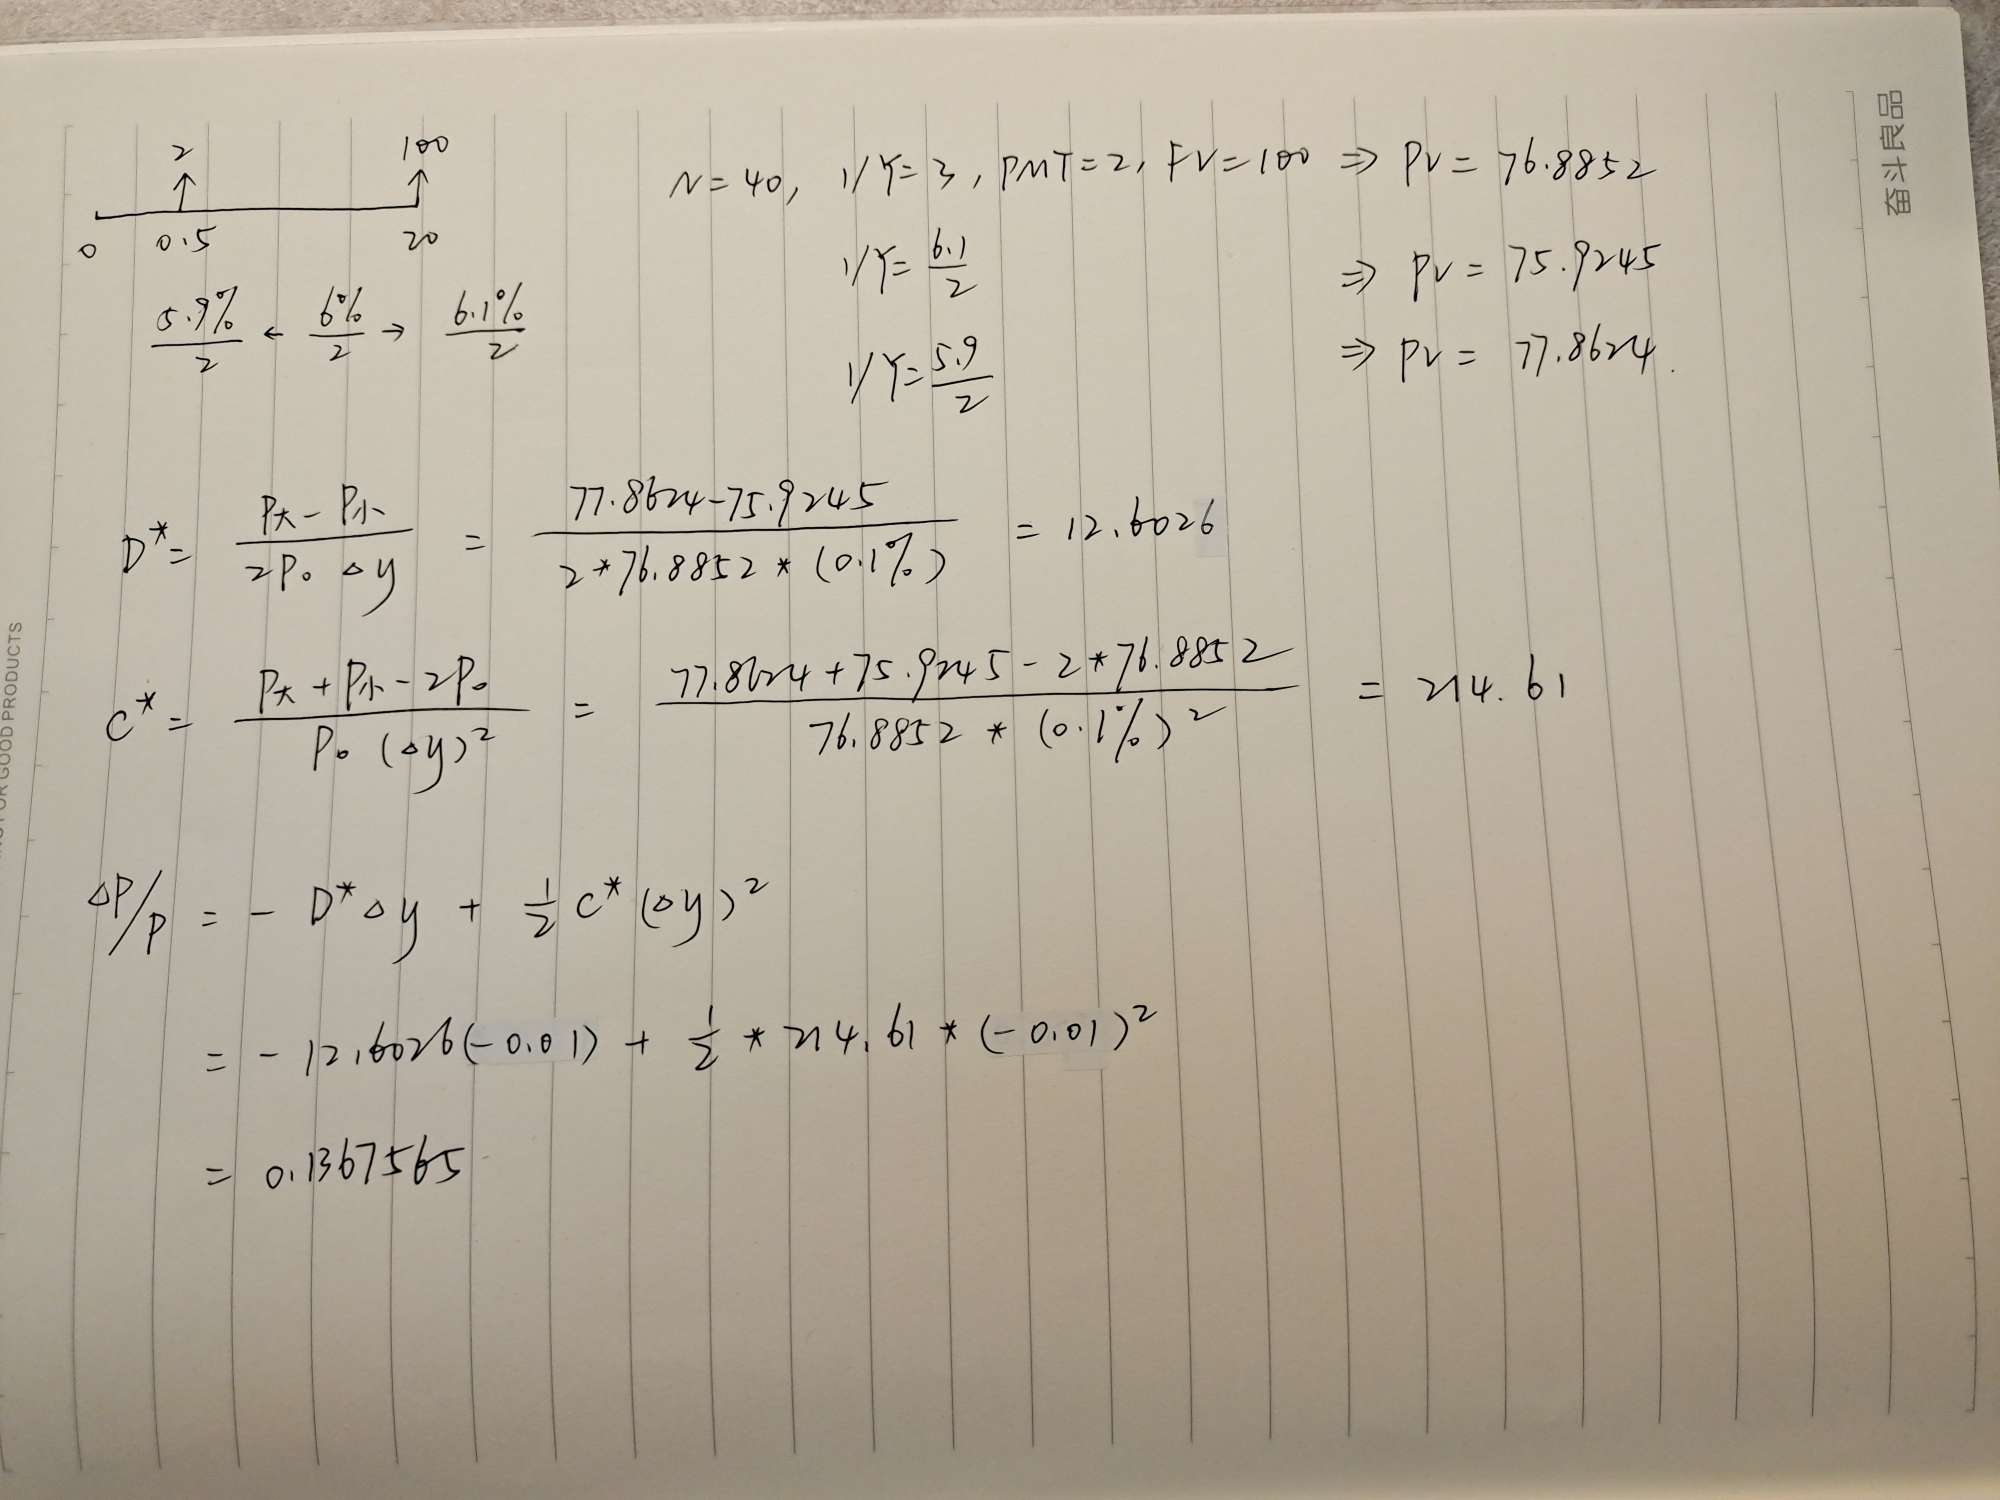 2 100
0 0.5 20
5.9%/2 ← 6%/2 → 6.1%/2
N=40, I/Y=3, PMT=2, FV=100 ⇒ PV = 76.8852
I/Y= 6.1/2 ⇒ PV = 75.9245
I/Y= 5.9/2 ⇒ PV = 77.8624
D* = (P大 - P小)/(2P₀ △y) = (77.8624-75.9245)/(2*76.8852*(0.1%)) = 12.6026
C* = (P大 + P小 - 2P₀)/(P₀ (△y)²) = (77.8624+75.9245-2*76.8852)/(76.8852*(0.1%)²) = 214.61
△P/P = - D*△y + 1/2 C*(△y)²
= - 12.6026(-0.01) + 1/2 * 214.61 * (-0.01)²
= 0.1367565
奋斗良品
GOOD PRODUCTS